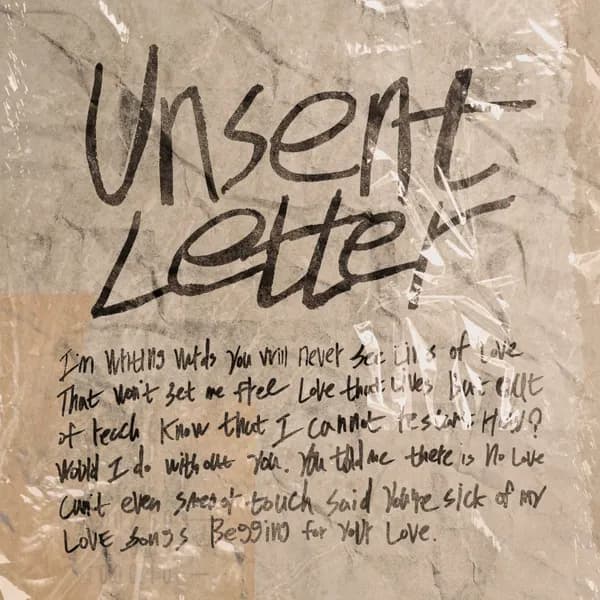 Unsent
Letter
I'm writing words you will never see Lines of Love
That won't set me free Love that Lives But out
of reach Know that I cannot restart How?
Would I do without you. You told me there is no Love
Can't even see or touch said you're sick of my
Love songs Begging for your Love.